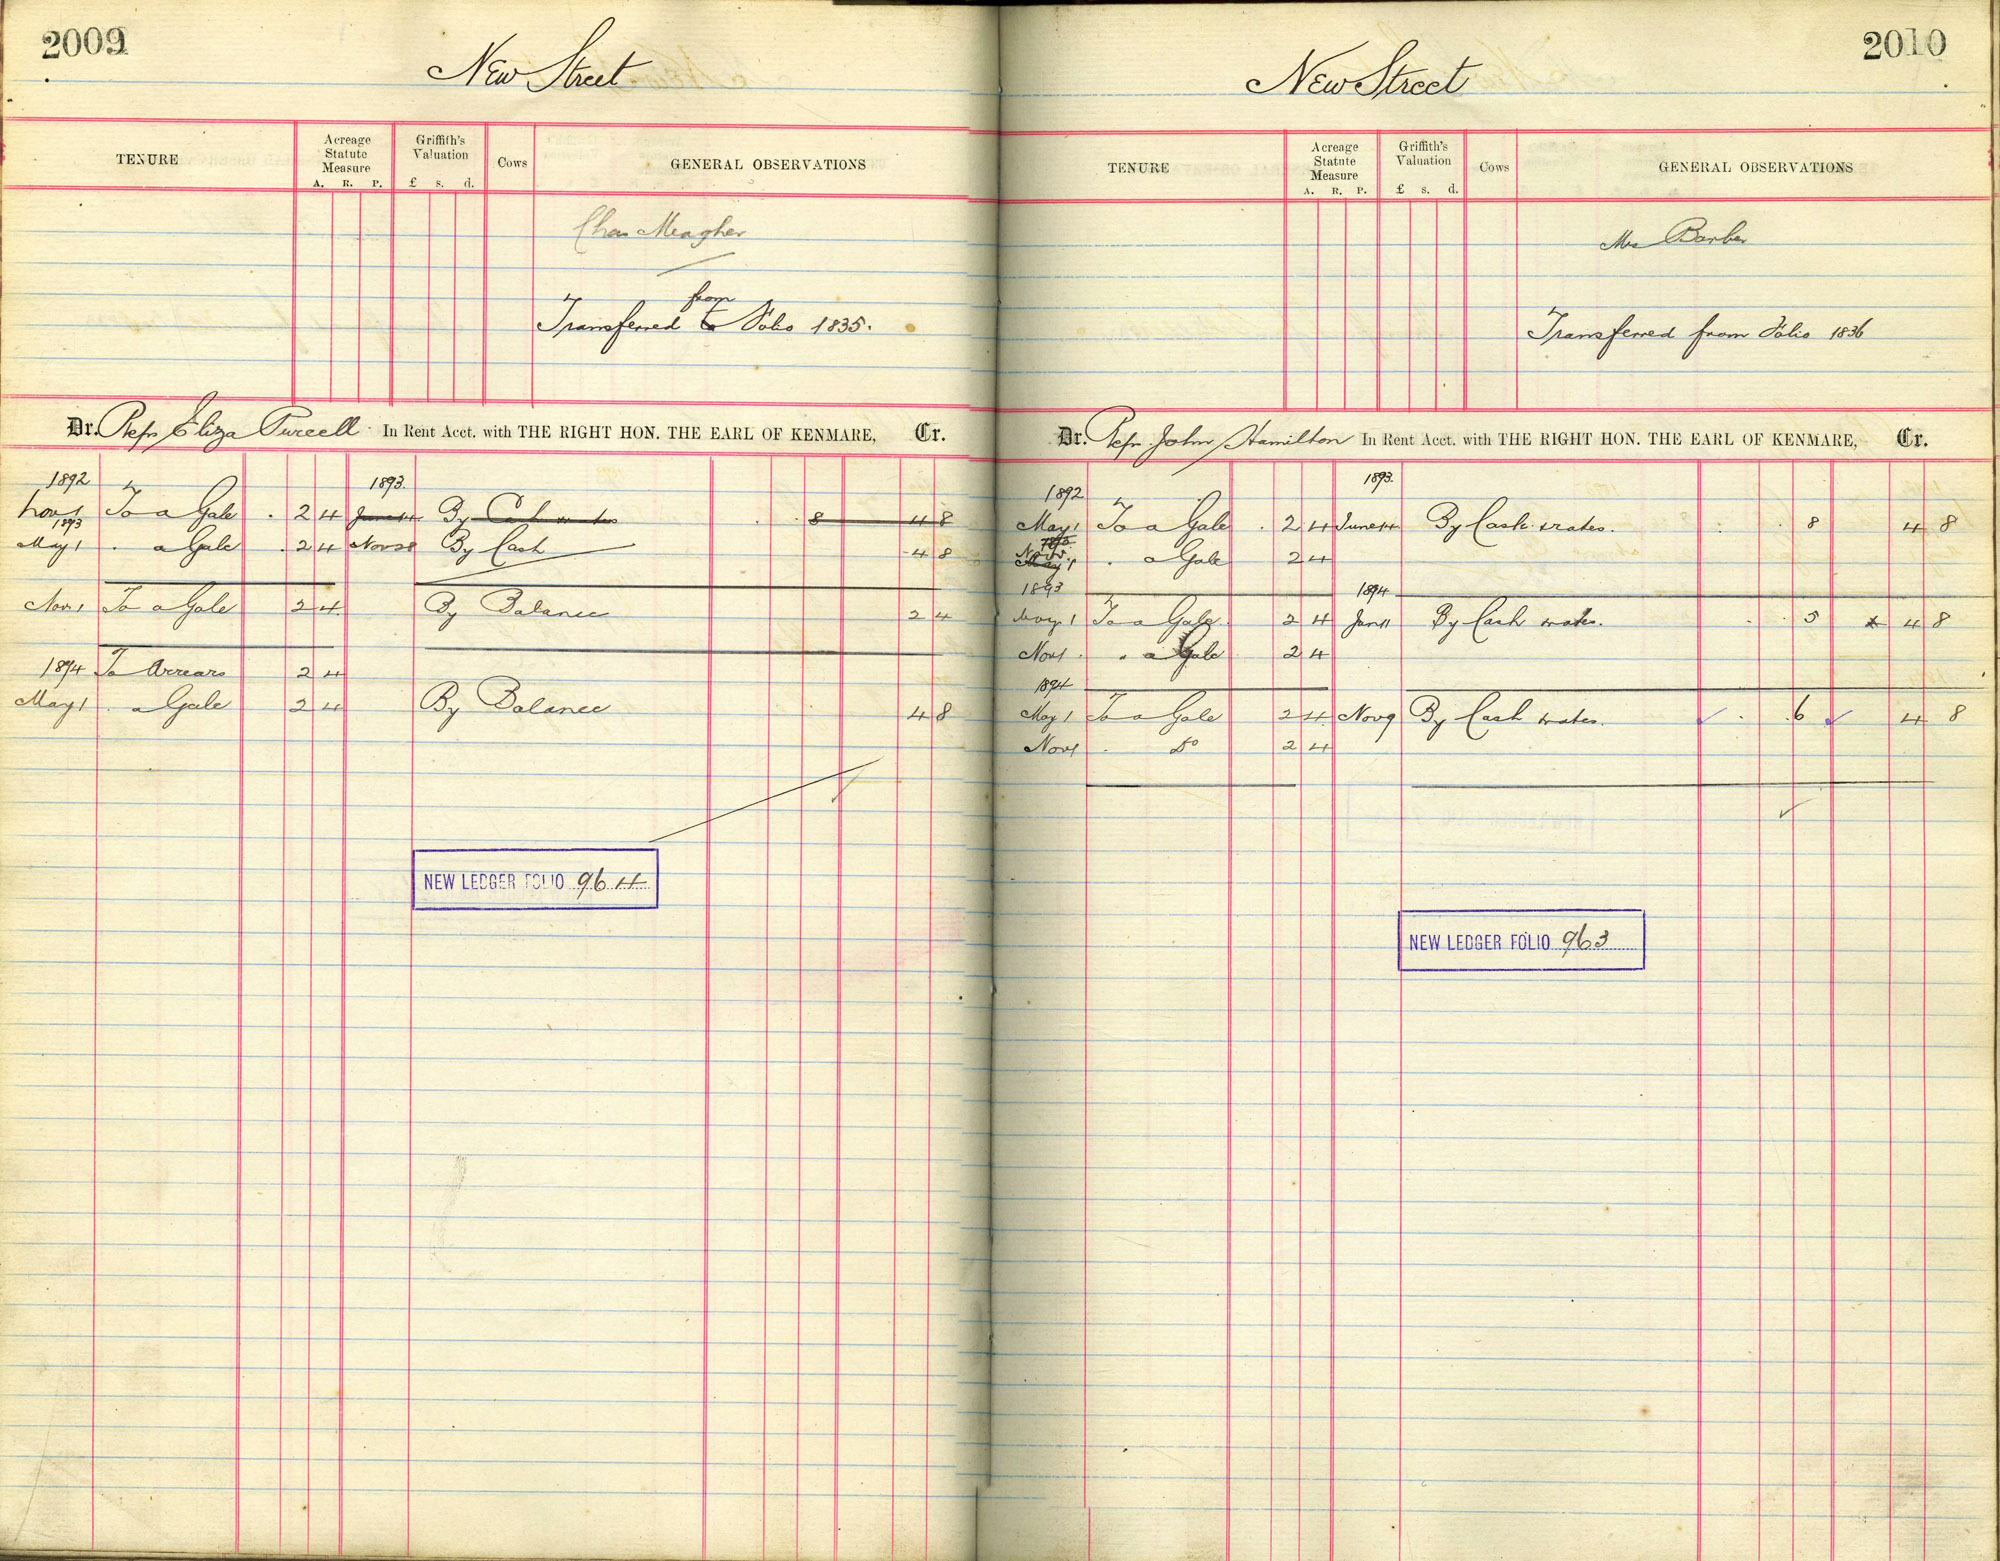 2009
New Street
TENURE
Acreage Statute Measure
A. R. P.
Griffith's Valuation
£ s. d.
Cows
GENERAL OBSERVATIONS
Chas Meagher
from
Transferred to Folio 1835.
Dr. Reps Eliza Purcell In Rent Acct. with THE RIGHT HON. THE EARL OF KENMARE, Cr.
1892 1893.
Nov 1 To a Gale . 2 4 June 14 By Cash & rates . . 8 4 8
1893
May 1 . a Gale . 2 4 Nov 28 By Cash 4 8
Nov 1 To a Gale 2 4 By Balance 2 4
1894 To Arrears 2 4
May 1 . a Gale 2 4 By Balance 4 8
NEW LEDGER FOLIO 964
2010
New Street
TENURE
Acreage Statute Measure
A. R. P.
Griffith's Valuation
£ s. d.
Cows
GENERAL OBSERVATIONS
Mrs Barber
Transferred from Folio 1836
Dr. Reps John Hamilton In Rent Acct. with THE RIGHT HON. THE EARL OF KENMARE, Cr.
1892 1893.
May 1 To a Gale . 2 4 June 14 By Cash & rates. . . 8 4 8
1893
Nov. May 1 . a Gale 2 4
1893 1894
May 1 To a Gale 2 4 Jan 11 By Cash & rates. . . 5 4 8
Nov 1 . a Gale 2 4
1894
May 1 To a Gale 2 4 Nov 9 By Cash & rates. ✓ . . 6 ✓ 4 8
Nov 1 . Do 2 4
✓
NEW LEDGER FOLIO 963